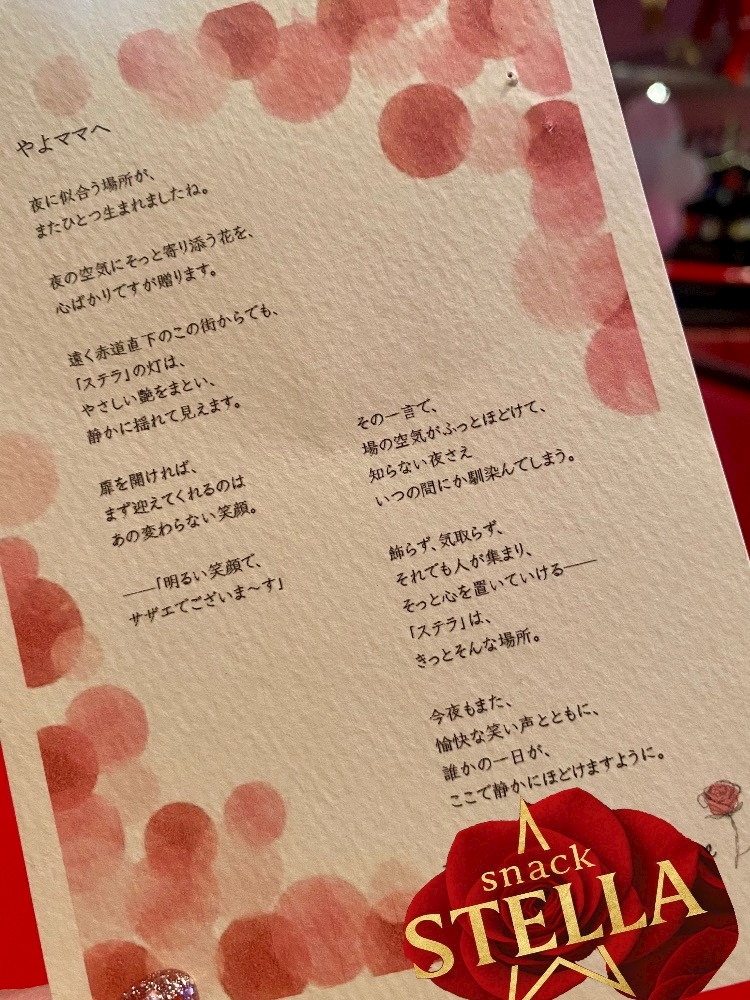 やよママへ
夜に似合う場所が、
またひとつ生まれましたね。
夜の空気にそっと寄り添う花を、
心ばかりですが贈ります。
遠く赤道直下のこの街からでも、
「ステラ」の灯は、
やさしい艶をまとい、
静かに揺れて見えます。
扉を開ければ、
まず迎えてくれるのは
あの変わらない笑顔。
──「明るい笑顔で、
サザエでございま〜す」
その一言で、
場の空気がふっとほどけて、
知らない夜さえ
いつの間にか馴染んでしまう。
飾らず、気取らず、
それでも人が集まり、
そっと心を置いていける──
「ステラ」は、
きっとそんな場所。
今夜もまた、
愉快な笑い声とともに、
誰かの一日が、
ここで静かにほどけますように。
snack
STELLA